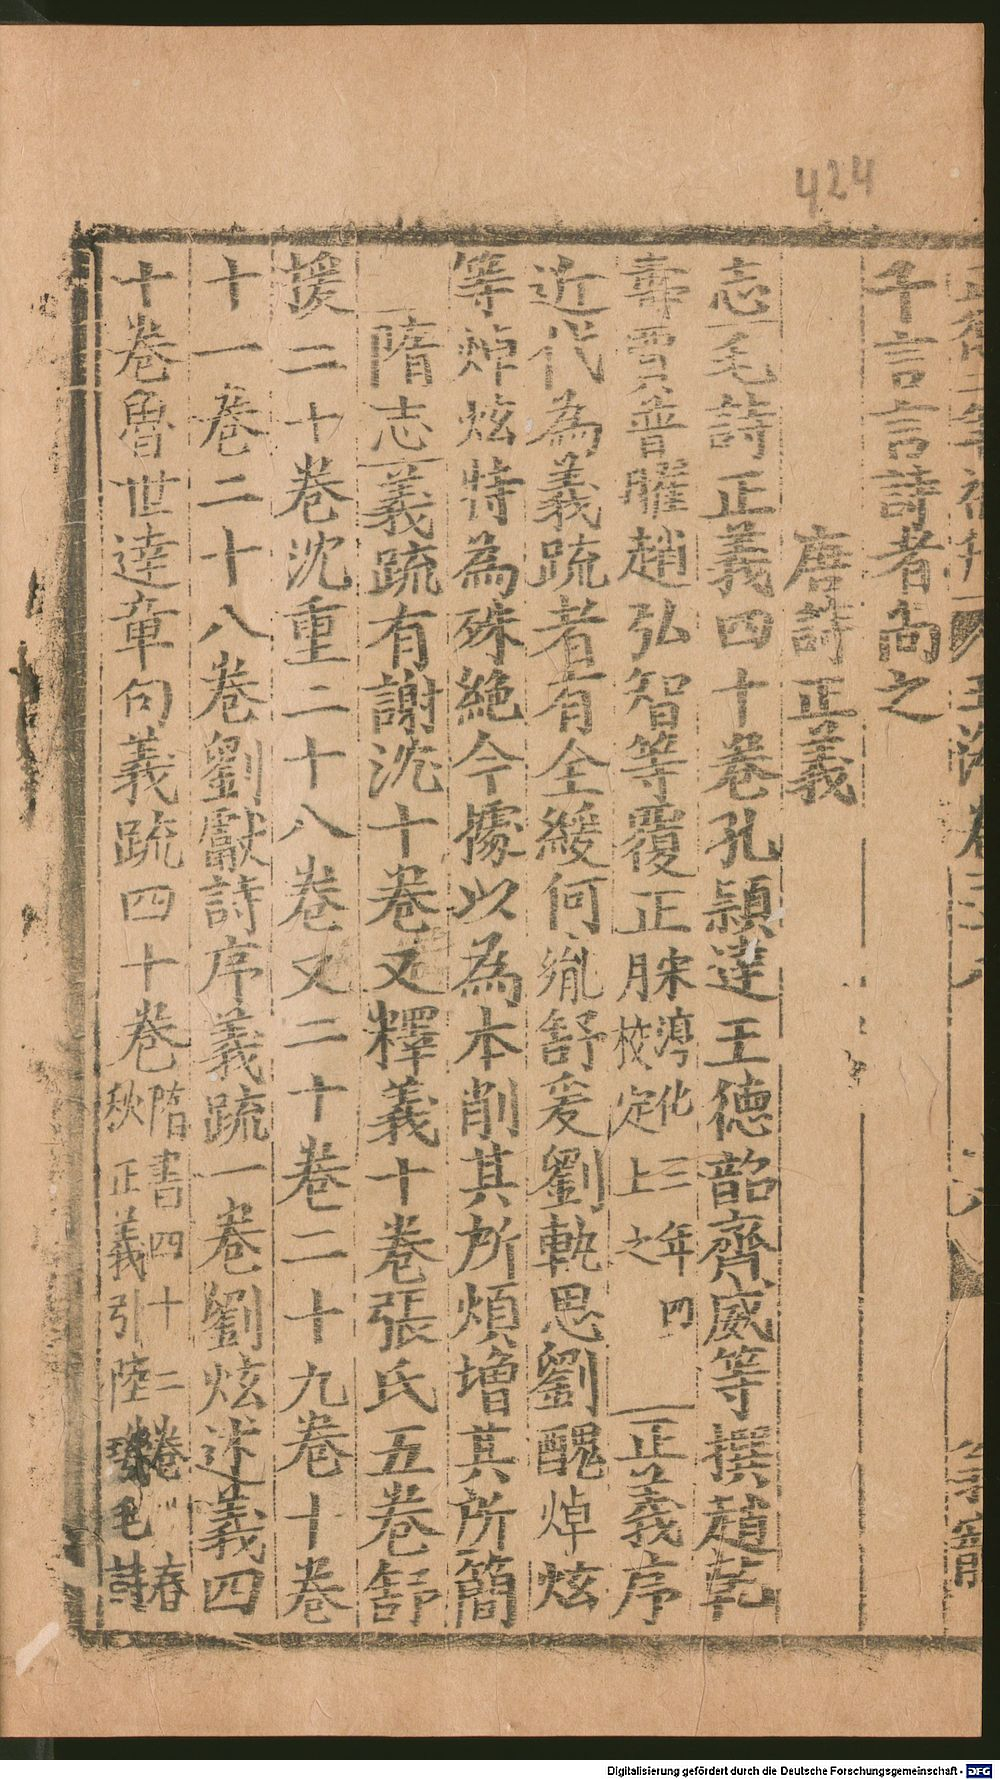 424
千言言詩者尚之
唐詩正義
志毛詩正義四十卷孔頴達王德韶齊威等撰趙乾
壽賈普曜趙弘智等覆正淳化三年四月校定上之正義序
近代為義疏者有全緩何胤舒爰劉軌思劉醜焯炫
等焯炫特為殊絶今據以為本削其所煩增其所簡
隋志義疏有謝沈十卷又釋義十卷張氏五卷舒
援二十卷沈重二十八卷又二十卷二十九卷十卷
十一卷二十八卷劉獻詩序義疏一卷劉炫述義四
十卷魯世逹章句義疏四十卷隋書四十二卷春秋正義引陸璣毛詩
Digitalisierung gefördert durch die Deutsche Forschungsgemeinschaft - DFG